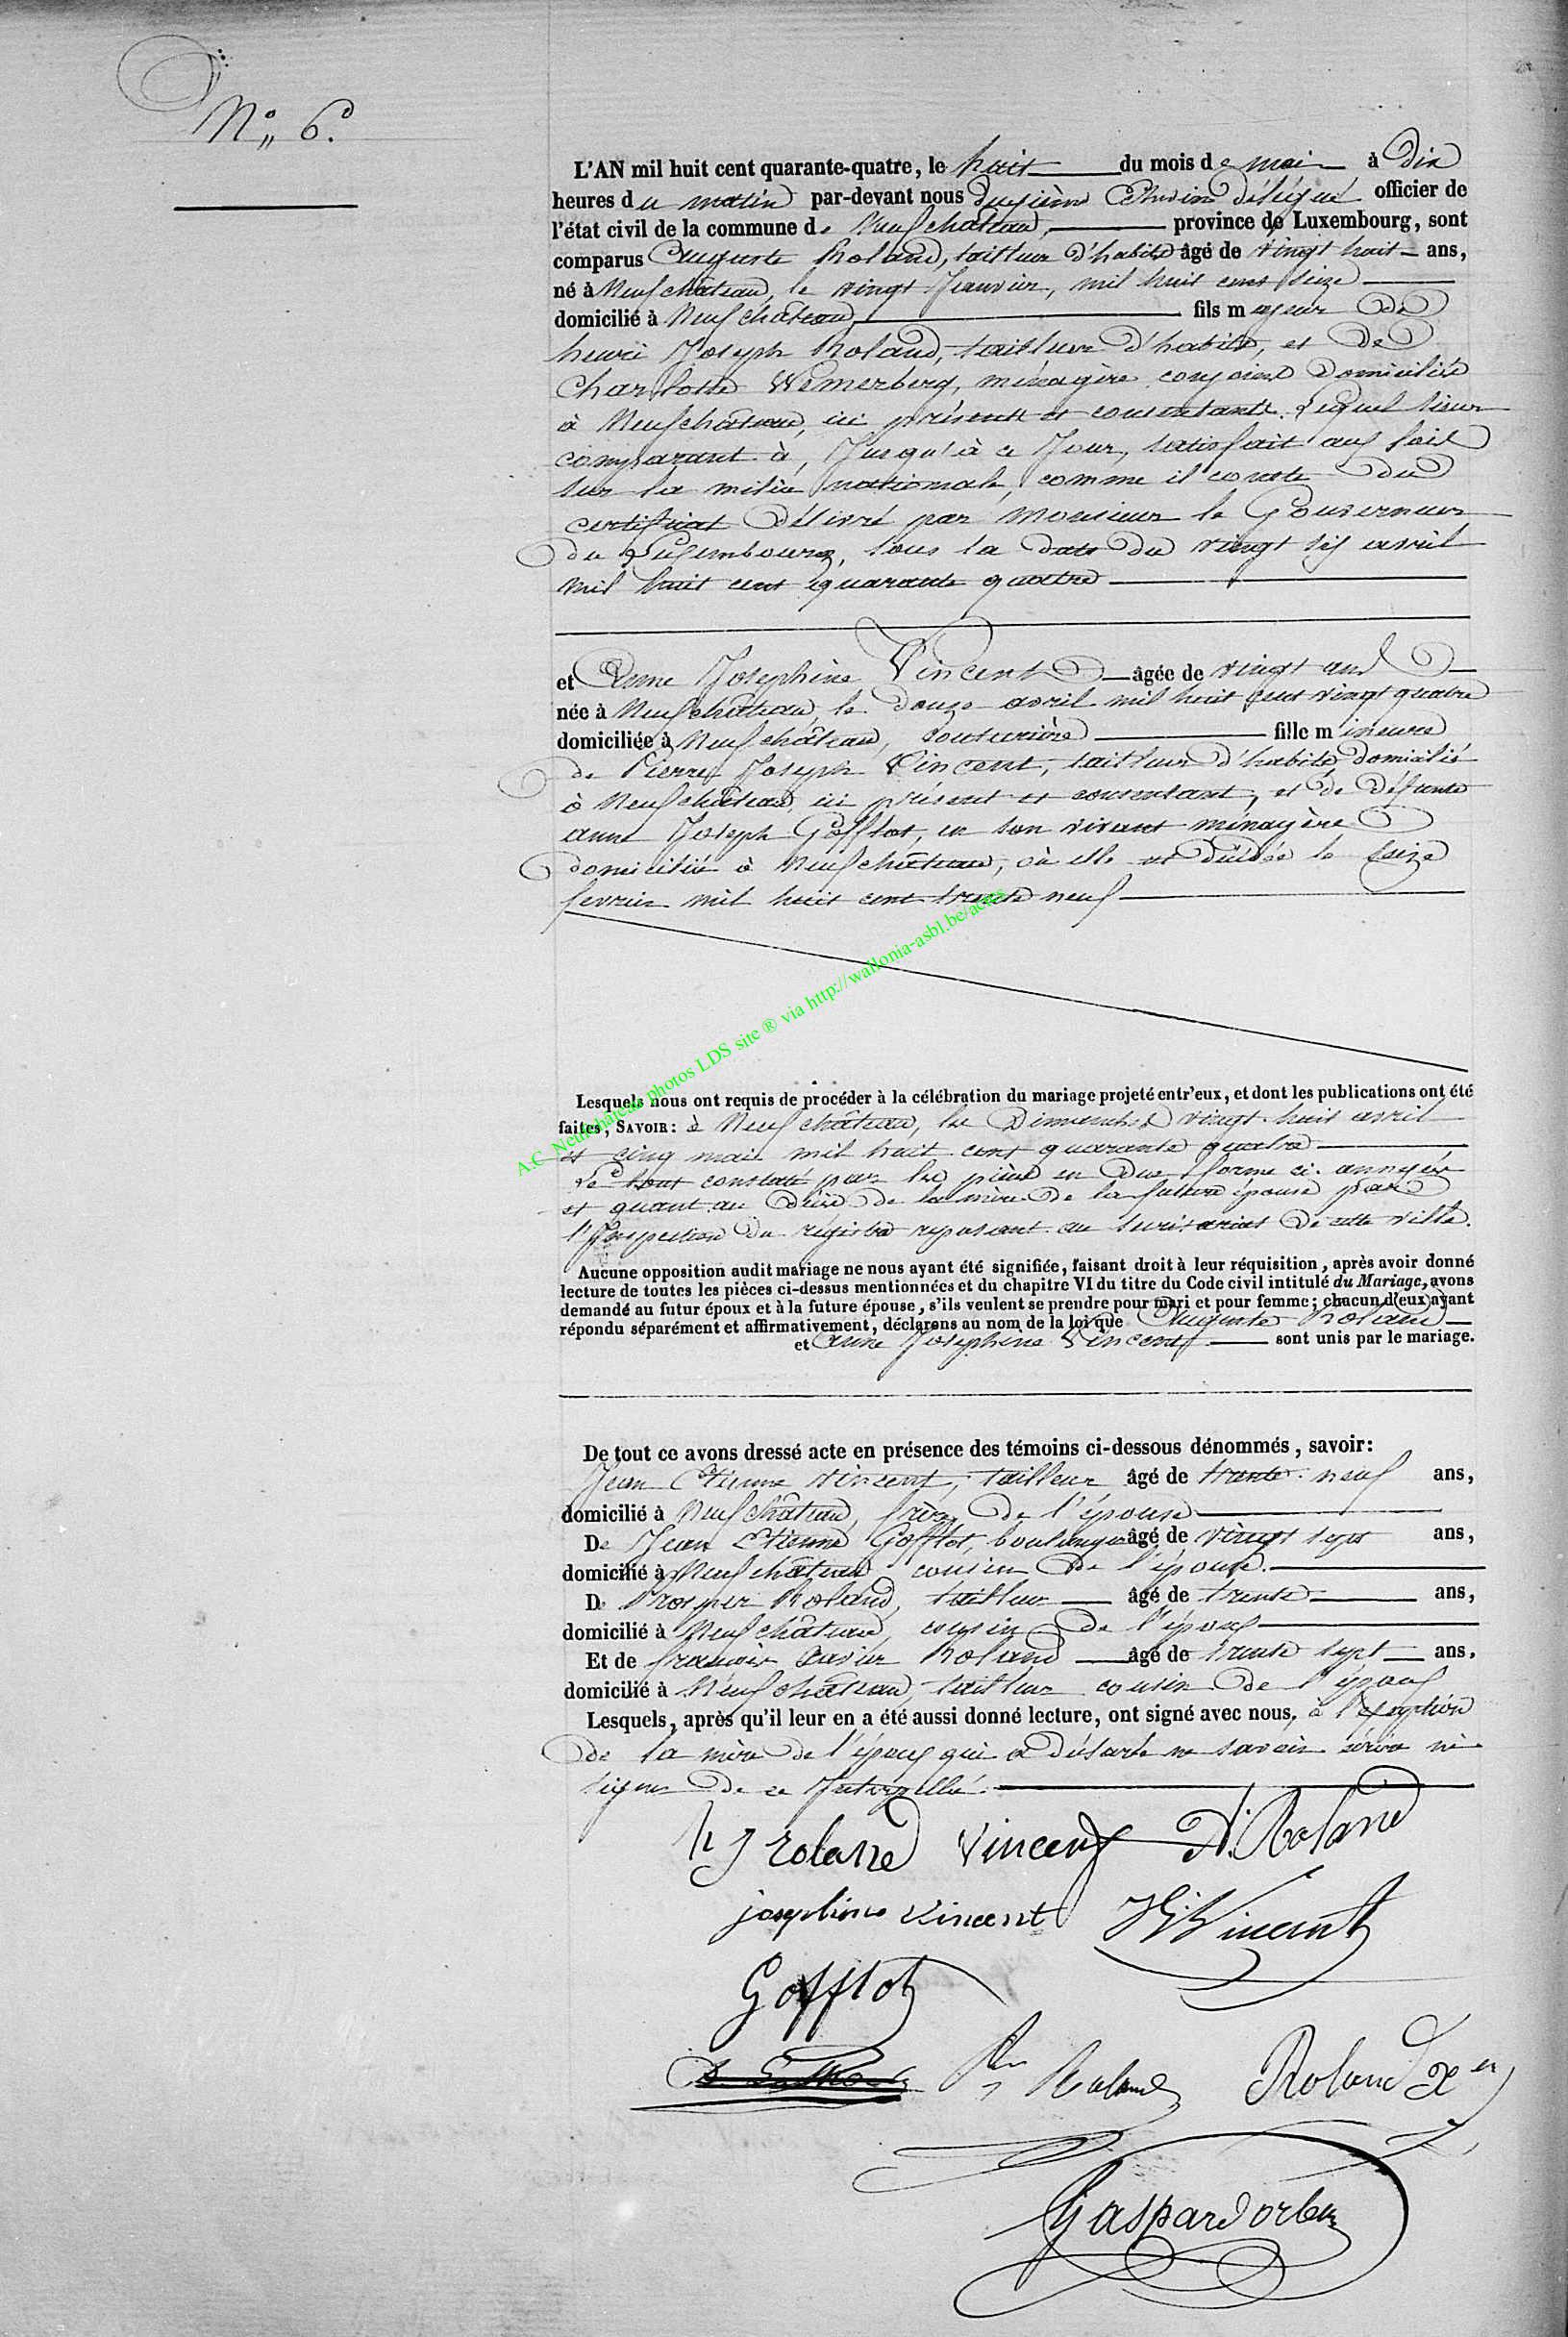 N° 6.
L'AN mil huit cent quarante-quatre, le huit du mois de mai à dix
heures du matin par-devant nous deuxième Echevin délégué officier de
l'état civil de la commune de Neufchateau, province de Luxembourg, sont
comparus Auguste Roland, tailleur d'habits âgé de vingt huit ans,
né à Neufchâteau, le vingt Janvier, mil huit cent seize
domicilié à Neufchateau fils majeur de
henri Joseph Roland, tailleur d'habits, et de
Charlotte Wemerberg, ménagère conjoints domiciliés
à Neufchâteau, ici présents et consentants. Lequel sieur
comparant à, Jusqu'à ce Jour, satisfait aux lois
sur la milice nationale, comme il conste du
certificat délivré par Monsieur le Gouverneur
du Luxembourg, sous la date du vingt six avril
mil huit cent quarante quatre
et Anne Josephine Vincent âgée de vingt ans
née à Neufchâteau, le douze avril mil huit cent vingt quatre
domiciliée à Neufchâteau, couturière fille mineure
de Pierre Joseph Vincent, tailleur d'habits, domicilié
à Neufchâteau, ici présent et consentant, et de défunte
anne Joseph Gofflot, en son vivant ménagère
domiciliée à Neufchâteau, où elle est décédée le seize
fevrier mil huit cent trente neuf
A.C. Neufchâteau photos LDS site ® via http://wallonia-asbl.be/actes
Lesquels nous ont requis de procéder à la célébration du mariage projeté entr'eux, et dont les publications ont été
faites, SAVOIR: à Neufchâteau, les Dimanches vingt-huit avril
et cinq mai mil huit cent quarante quatre
Le tout constaté par les pièces en due forme ci-annexées
et quant au décès de la mère de la future épouse par
l'Inspection du régistre reposant au secrétariat de cette ville.
Aucune opposition audit mariage ne nous ayant été signifiée, faisant droit à leur réquisition, après avoir donné
lecture de toutes les pièces ci-dessus mentionnées et du chapitre VI du titre du Code civil intitulé du Mariage, avons
demandé au futur époux et à la future épouse, s'ils veulent se prendre pour mari et pour femme; chacun d'eux ayant
répondu séparément et affirmativement, déclarons au nom de la loi que Auguste Roland
et Anne Josephine Vincent sont unis par le mariage.
De tout ce avons dressé acte en présence des témoins ci-dessous dénommés, savoir:
Jean Etienne Vincent, tailleur âgé de trente-neuf ans,
domicilié à Neufchâteau, frère de l'épouse
De Jean Etienne Gofflot, boulanger âgé de vingt sept ans,
domicilié à Neufchâteau cousin de l'épouse.
De Prosper Roland, tailleur âgé de trente ans,
domicilié à Neufchâteau, cousin de l'époux
Et de françois Xavier Roland âgé de trente sept ans,
domicilié à Neufchâteau, tailleur cousin de l'époux
Lesquels, après qu'il leur en a été aussi donné lecture, ont signé avec nous, à l'exeption
de la mère de l'époux qui a déclaré ne savoir écrire ni
signer de ce Interpellée.
h J roland Vincent A. Roland
josephine Vincent J E Vincent
Gofflot
Roland Roland Xer
Gaspard orban